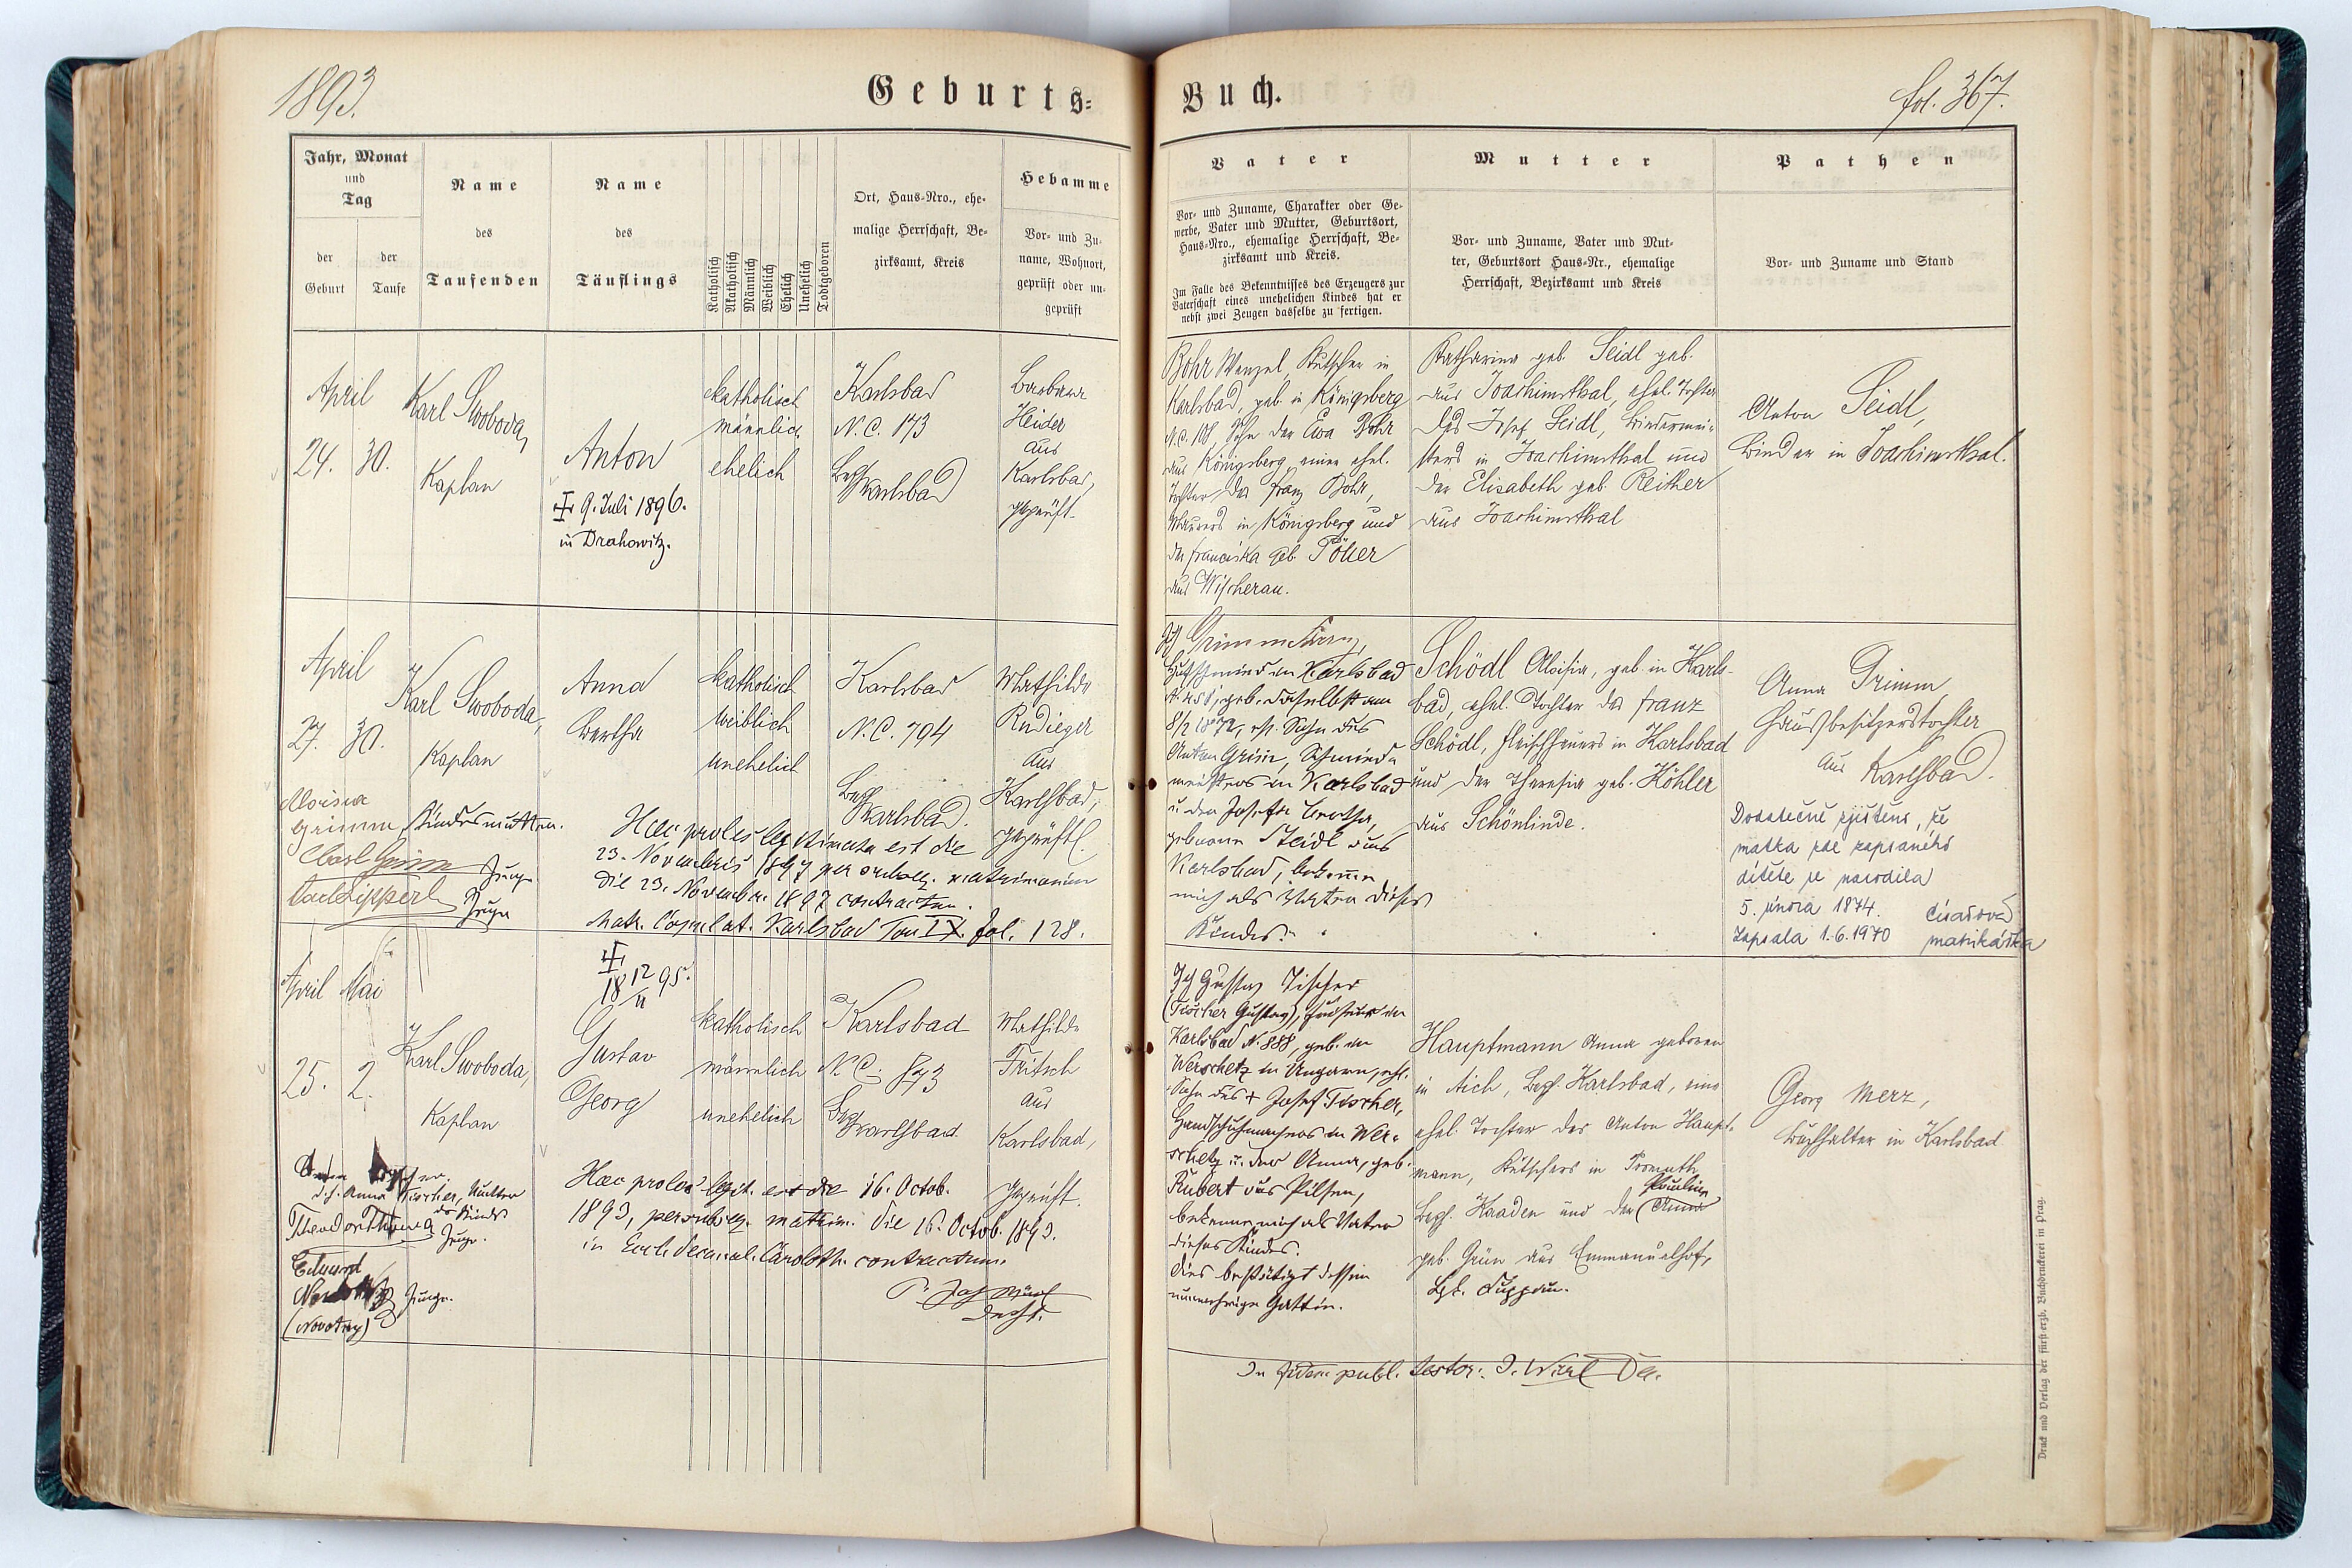 1893.
Geburts-
Jahr, Monat
und
Tag
der Geburt
der Taufe
Name
des
Taufenden
Name
des
Täuflings
Katholisch
Akatholisch
Männlich
Weiblich
Ehelich
Unehelich
Todtgeboren
Ort, Haus-Nro., ehe-
malige Herrschaft, Be-
zirksamt, Kreis
Hebamme
Vor- und Zu-
name, Wohnort,
geprüft oder un-
geprüft
April
24. 30.
Karl Swoboda,
Kaplan
Anton
9. Juli 1896.
in Drahowitz.
katholisch
männlich
ehelich
Karlsbad
N.C. 173
Bez. Karlsbad
Barbara
Heider
aus
Karlsbad,
geprüft.
April
27. 30.
Karl Swoboda,
Kaplan
Anna
Bertha
katholisch
weiblich
unehelich
Karlsbad
N.C. 794
Bez. Karlsbad.
Mathilde
Rudieger
aus
Karlsbad,
geprüft.
Aloisia
Grimm, Kindesmutter.
Zeuge
Zeuge
Haec proles legitimata est die
23. Novembris 1897 per subseq. matrimonium
die 23. Novembr. 1897 contractum.
Matr. Copulat. Karlsbad Tom IX. fol. 128.
April Mai
25. 2.
Karl Swoboda,
Kaplan
18 12/11 95.
Gustav
Georg
katholisch
männlich
unehelich
Karlsbad
N.C. 873
Bez. Karlsbad
Mathilde
Fritsch
aus
Karlsbad,
geprüft.
d.h. Anna Fischer, Mutter
des Kindes
Zeuge.
Eduard
Zeuge.
(Novotny)
Haec proles legit. est die 16. Octob.
1893, per subseq. matrim. die 16. Octob. 1893.
in contractum.
Buch.
fol. 367.
Vater
Vor- und Zuname, Charakter oder Ge-
werbe, Vater und Mutter, Geburtsort,
Haus-Nro., ehemalige Herrschaft, Be-
zirksamt und Kreis.
Im Falle des Bekenntnisses des Erzeugers zur
Vaterschaft eines unehelichen Kindes hat er
nebst zwei Zeugen dasselbe zu fertigen.
Mutter
Vor- und Zuname, Vater und Mut-
ter, Geburtsort Haus-Nr., ehemalige
Herrschaft, Bezirksamt und Kreis
Pathen
Vor- und Zuname und Stand
Bohr Wenzel, Kutscher in
Karlsbad, geb. in Königsberg
N.C. 108, Sohn der Eva Bohr
aus Königsberg, einer ehel.
Tochter des Franz Bohr,
Maurers in Königsberg und
der Franciska geb.
aus Wischerau.
Katharina geb. Seidl geb.
aus Joachimsthal, ehel. Tochter
des Josef Seidl, Bindermei-
sters in Joachimsthal und
der Elisabeth geb. Reither
aus Joachimsthal
Anton Seidl,
Binder in Joachimsthal.
Ich Grimm
in Karlsbad
geb. daselbst am
Sohn des
Anton Grimm, Schmied-
meisters in Karlsbad
u. der Josefa Bertha,
geborene Steidl aus
Karlsbad, bekenne
mich als Vater dieses
Kindes.
Schödl Aloisia, geb. in Karls-
bad, ehel. Tochter des Franz
Schödl, Fleischhauers in Karlsbad
und der Theresia geb. Köhler
aus Schönlinde.
Anna Grimm,
Hausbesitzerstochter
aus Karlsbad.
Dodatečně zjištěno, že
matka zde zapsaného
dítěte se narodila
5. února 1874.
Zapsala 1.6.1970 matrikářka
Ich Gustav Fischer
(Fischer Gustav), in
Karlsbad N. 888, geb. in
Werschetz in Ungarn, ehl.
Sohn des + Josef Fischer,
Handschuhmachers in Wer-
schetz u. der Anna, geb.
Rubert aus Pilsen,
bekenne mich als Vater
dieses Kindes.
Dies bestätigt dessen
nunmehrige Gattin.
Hauptmann Anna geboren
in Aich, Bez. Karlsbad, eine
ehel. Tochter des Anton Haupt-
mann, Kutschers in
Bez. Kaaden und der (Anna)
Paulina
geb. Grün aus Emmanuelhof,
Bez. Duppau.
Georg Merz,
Buchhalter in Karlsbad
In fidem publ. testor: J. Wirl
Druck und Verlag der fürst-erzb. Buchdruckerei in Prag.